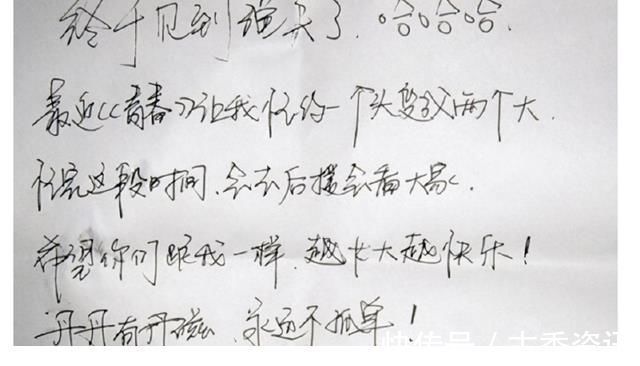 终于见到头了.哈哈哈.
最近《青春》让我忙的一个头变成两个大.
忙完这段时间.会去后援会看大家.
希望你们跟我一样.越长大越快乐!
丹丹有丹磁.永远不孤单!
快传号 /